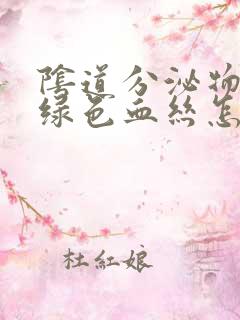 阴道分泌物
绿色血丝怎
杜红娘